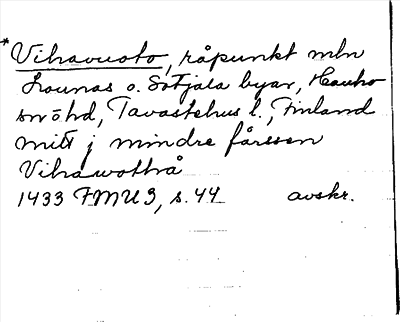 *Vihavuoto, råpunkt mln
Lounas o. Sotjala byar, Hauho
sn o hd, Tavastehus l., Finland
mitt j mindre fårssen
Vihawothå
1433 FMU 3, s. 44 avskr.